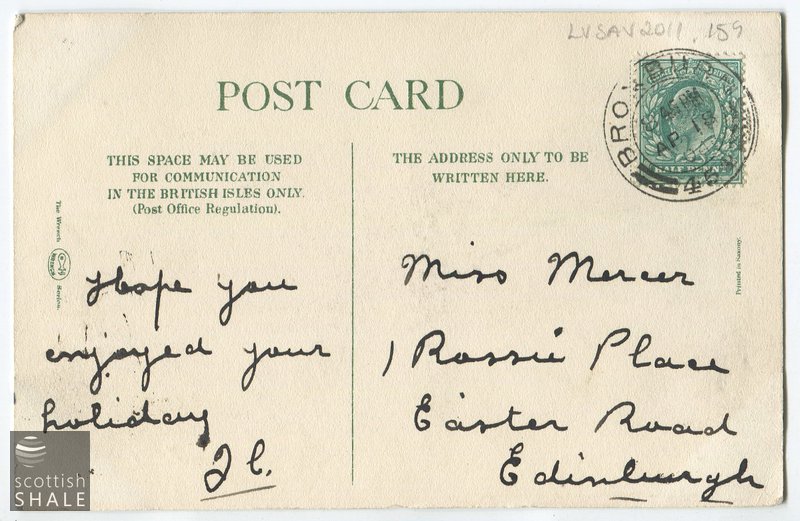 LVSAV2011.159
POST CARD
THIS SPACE MAY BE USED
FOR COMMUNICATION
IN THE BRITISH ISLES ONLY.
(Post Office Regulation).
THE ADDRESS ONLY TO BE
WRITTEN HERE.
BROXBURN
8.45 PM
AP 18
HALF PENNY
The Wrench
Series.
Printed in Saxony.
Hope you
enjoyed your
holiday
J C.
Miss Mercer
1 Rossie Place
Easter Road
Edinburgh
scottish
SHALE